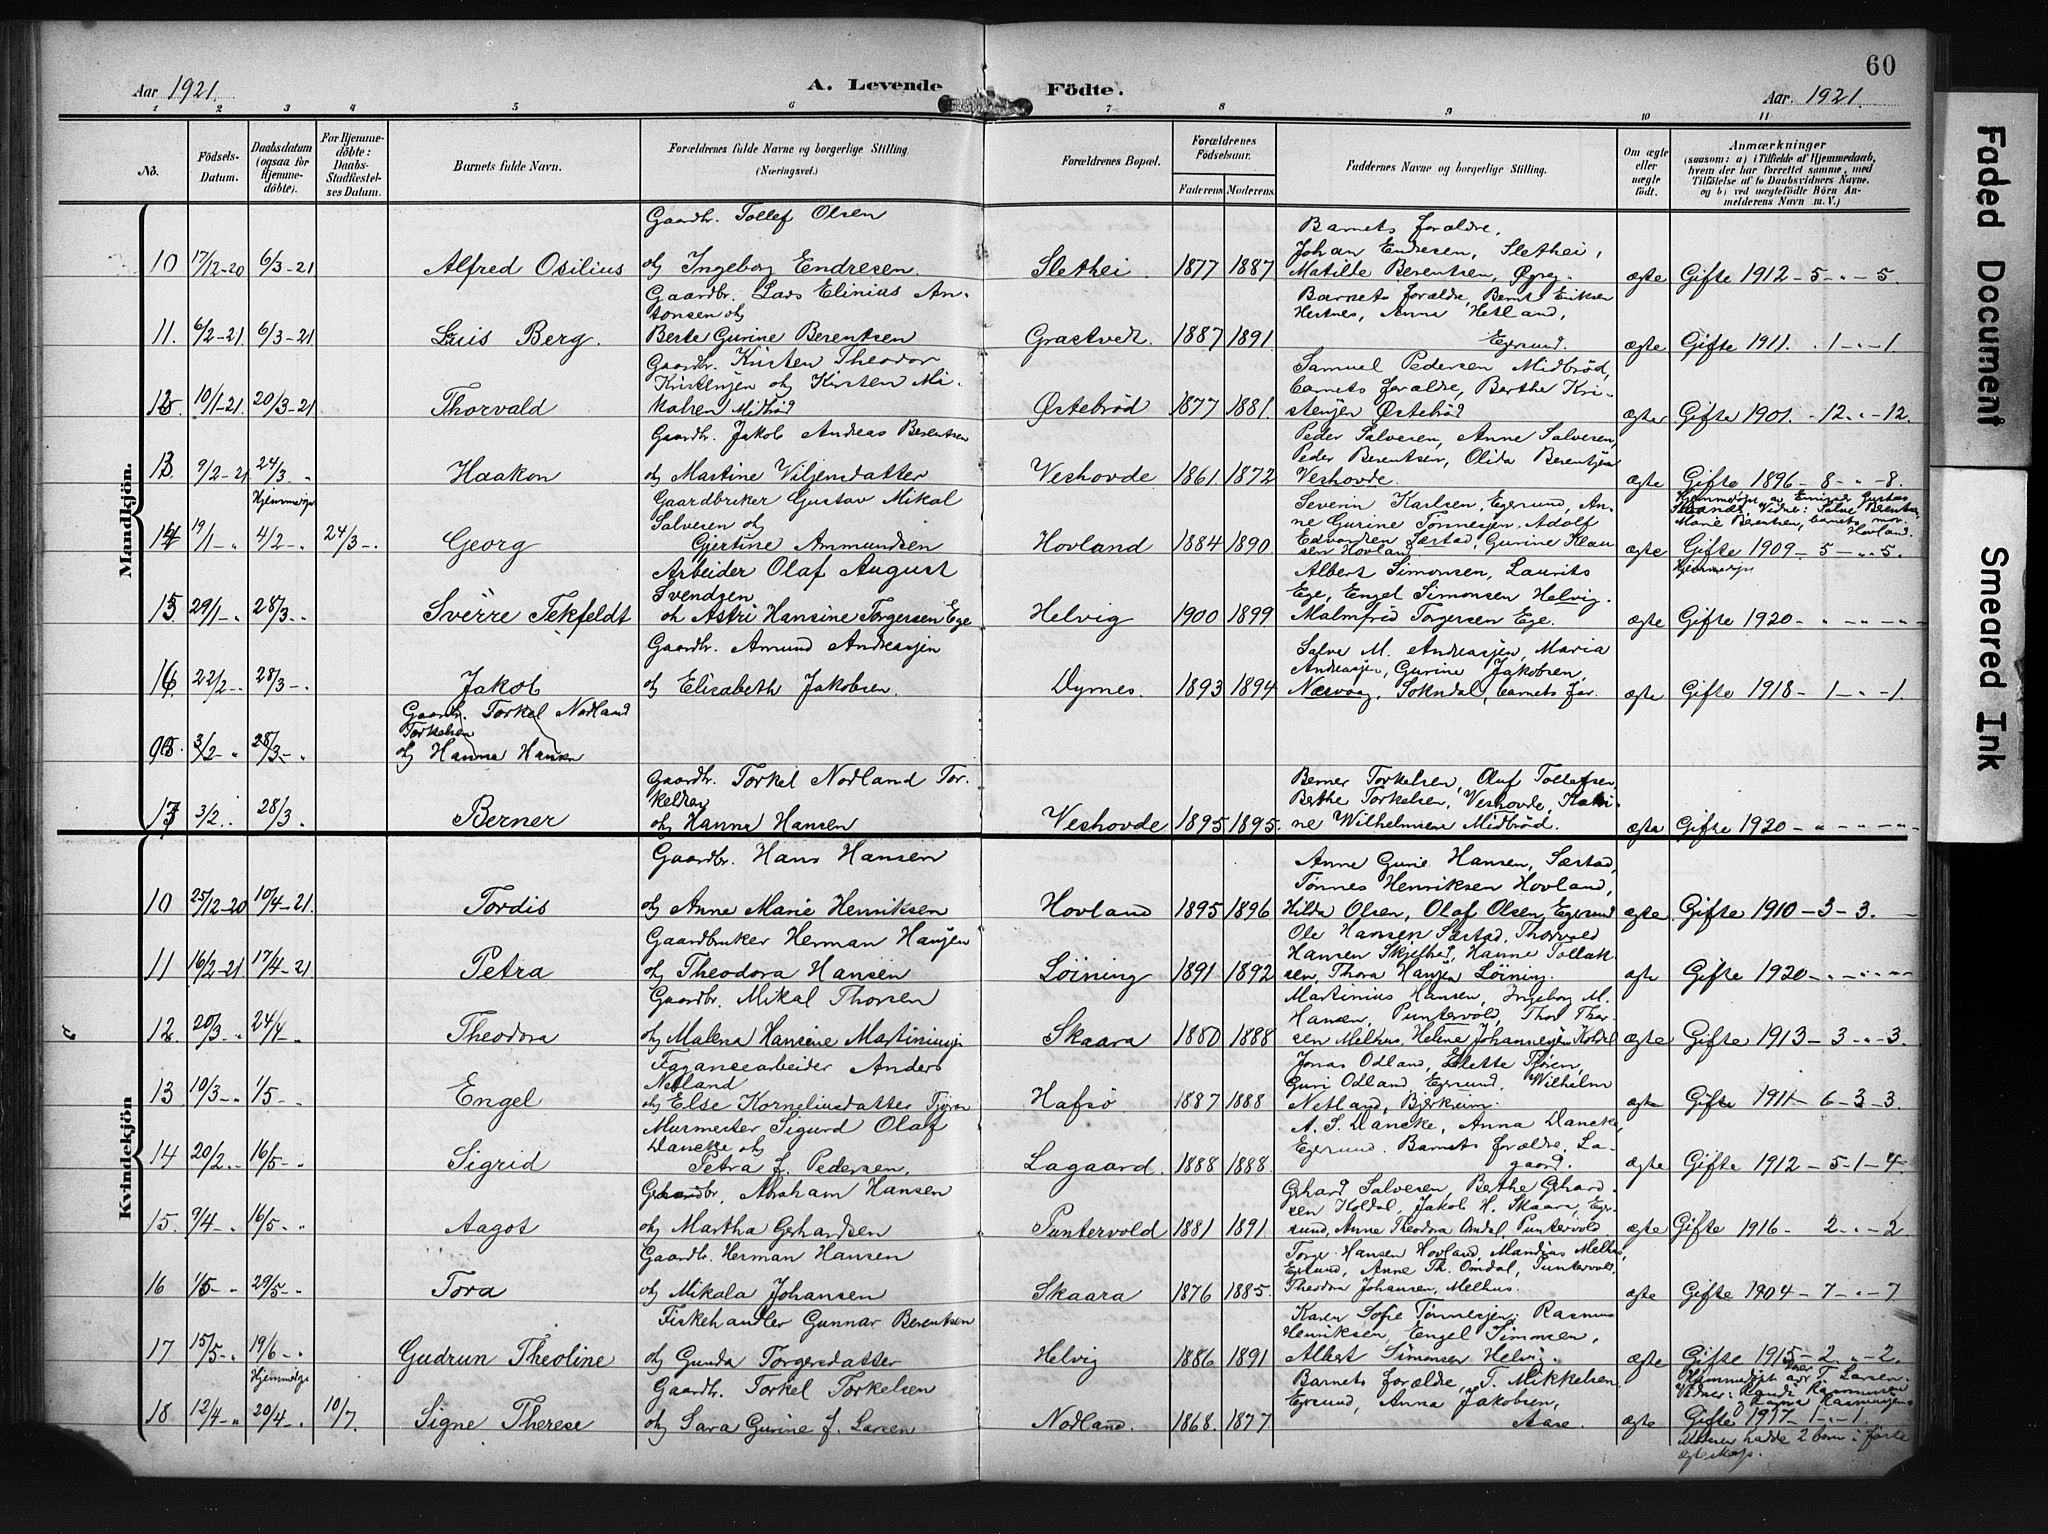 60
Aar 1921.
A. Levende Födte.
Aar. 1921.
1 2 3 4 5 6 7 8 9 10 11
No.
Födsels-Datum.
Daabsdatum (ogsaa for Hjemme-döbte).
For Hjemme-döbte: Daabs-Stadfæstel-ses Datum.
Barnets fulde Navn.
Forældrenes fulde Navne og borgerlige Stilling (Næringsvei.)
Forældrenes Bopæl.
Forældrenes Födselsaar.
Faderens. Moderens.
Faddernes Navne og borgerlige Stilling.
Om ægte eller uægte födt.
Anmærkninger
(saasom: a) i Tilfælde af Hjemmedaab,
hvem der har forrettet samme, med
Tilföielse af to Daabsvidners Navne.
og b) ved uægtefödte Börn An-
melderens Navn m. V.)
Mandkjön.
Gaardbr. Tollef Olsen
Barnets forældre,
Johan Endresen, Slethei,
10 17/12-20 6/3-21 Alfred Osilius og Ingeborg Endresen Slethei. 1877 1887 Matilde Berentsen, ægte Gifte 1912 - 5 - " - 5.
Gaardbr. Lars Elinius An-
tonsen og
Barnets forældre, Bernt Eriksen
Hestnes, Anna Hetland,
11. 6/2-21 6/3-21 Luis Berg. Berte Gurine Berentsen Grastvedt. 1887 1891. Egersund. ægte Gifte 1911. . 1 - " - 1.
Gaardbr. Kristen Theodor
Kristensen og Kirsten Mi-
Samuel Pedersen Midbröd,
barnets forældre, Berthe Kri-
12. 10/1-21. 20/3-21 Thorvald kalsen Midbröd Østebröd 1877 1881. stensen Østebröd ægte Gifte 1901. - 12. " - 12.
Gaardbr. Jakob Andreas Berentsen
Peder Salvesen, Anne Salvesen,
Peder Berentsen, Olida Berentsen
13 9/2-21 24/3 " Haakon og Martine Viljensdatter Veshovde 1861 1872 Veshovde. ægte Gifte 1896 - 8 - " - 8.
Hjemmedøpt
Gaardbruker Gustav Mikal
Salvesen og
Severin Karlsen, Egersund, An-
ne Gurine Tönnesen, Adolf
14 19/1 - " 4/2 - " 24/3 -. Georg Gjertine Ammundsen Hovland 1884 1890 Edvardsen Sæstad, Gurine Klau-
sen Hovland ægte Gifte 1909 - 5 - " - 5.
Hjemmedøpt
Arbeider Olaf August
Svendsen
Albert Simonsen, Laurits
Ege, Engel Simonsen Helvig.
15 29/1 - " 28/3. " Sverre Tekfeldt og Astri Hansine Torgersen Ege Helvig 1900 1899 Malmfrid Torgersen Ege. ægte Gifte 1920 - " - " - " -
Gaardbr. Amund Andreassen
Salve M. Andreassen, Maria
Andreassen, Gurine Jakobsen,
16 22/2 - " 28/3 - " Jakob og Elisabeth Jakobsen. Dyrnes. 1893 1894 Næsvaag, Sokndal, barnets far. ægte Gifte 1918 - 1 - " - 1.
Gaardbr. Torkel Nodland
Torkelsen
3/2 - " 28/3 - . og Hanna Hansen
Gaardbr. Torkel Nodland Tor-
kelsen
Berner Torkelsen, Oluf Tollefsen,
Berthe Torkelsen, Veshovde, Katri-
17 3/2 . " 28/3 . Berner og Hanna Hansen Veshovde 1895 1895. ne Wilhelmsen Midbröd. ægte Gifte 1920 - " - " - " -
Kvindekjön
Gaardbr. Hans Hansen
Anne Gurie Hansen, Sæstad,
Tönnes Henriksen Hovland,
10 25/12-20 10/4-21. Tordis og Anne Marie Henriksen Hovland 1895 1896 Hilda Olsen, Olaf Olsen, Egersund ægte. Gifte 1910 - 3 - 3. -
Gaardbruker Herman Hansen
Ole Hansen Sæstad, Thorvald
Hansen Hanne Tollak-
11 16/2-21 17/4-21 Petra og Theodora Hansen Löining 1891 1892 sen, Thora Hansen Löining. ægte Gifte 1920 - " - " - " -
Gaardbr. Mikal Thorsen
Martinius Hansen, Ingeborg M.
Hansen, Puntervold, Thor Thor-
12 20/3 . " 24/4 - . Theodora og Malena Hansine Martiniussen Skaara 1880 1888 sen Melhus, Helene Johannesen Koldal ægte Gifte 1913 - 3 - " - 3.
Fagancearbeider Anders
Netland
Jonas Odland, Elette Tjörn,
Guri Odland, Egersund, Wilhelm
13. 10/3 - " 1/5 - " Engel og Else Korneliusdatter Tjörn Hafsö 1887 1888 Netland, Bjerkreim. ægte Gifte 1911 - 6 - 3 - 3.
Murmester Sigurd Olaf
Dancke og
A. S. Dancke, Anna Dancke,
Egersund. Barnets forældre, La-
14 20/2 . " 16/5 - " Sigrid Petra f. Pedersen. Lagaard. 1888 1888. gaard. ægte Gifte 1912 - 5 - 1 - 4.
Gaardbr. Abraham Hansen
Gehard Salvesen, Berthe Gehard-
sen Koldal, Jakob H. Skaara, Eger-
15. 9/4 - " 16/5. " Aagot og Martha Gerhardsen Puntervold 1881 1891 sund, Anne Theodora Omdal, Puntervold ægte Gifte 1916 - 2 - " - 2.
Gaardbr. Herman Hansen
Torge Hansen Hovland, Mandius Melhus,
Egersund, Anne Th. Omdal, Puntervold,
16 1/5 - " 29/5 - " Tora og Mikala Johansen Skaara 1876 1885. Theodora Johansen, Melhus. ægte Gifte 1904 - 7 - " - 7
Fiskehandler Gunnar Berentsen
Karen Sofie Tönnesen, Rasmus
Henriksen, Engel Simonsen,
17 15/5 - " 19/6 - . Gudrun Theoline og Gunda Torgersdatter Helvig 1886 1891 Albert Simonsen Helvig. ægte Gifte 1915 - 2 - " - 2.
Hjemmedøpt
Gaardbr. Torkel Torkelsen
Barnets forældre, T. Mikkelsen
Egersund, Anna Jakobsen,
Hjemmedøpt av T. Larsen.
Vidner: Randi Rasmussen
18 12/4 - " 20/4 - . 10/7. Signe Therese og Sara Gurine f. Larsen Nodland. 1868. 1877 Aase. ægte Gifte 1917 - 1 - " - 1.
Moderen hadde 2 barn i første
ægteskap.
Faded Document
Smeared Ink